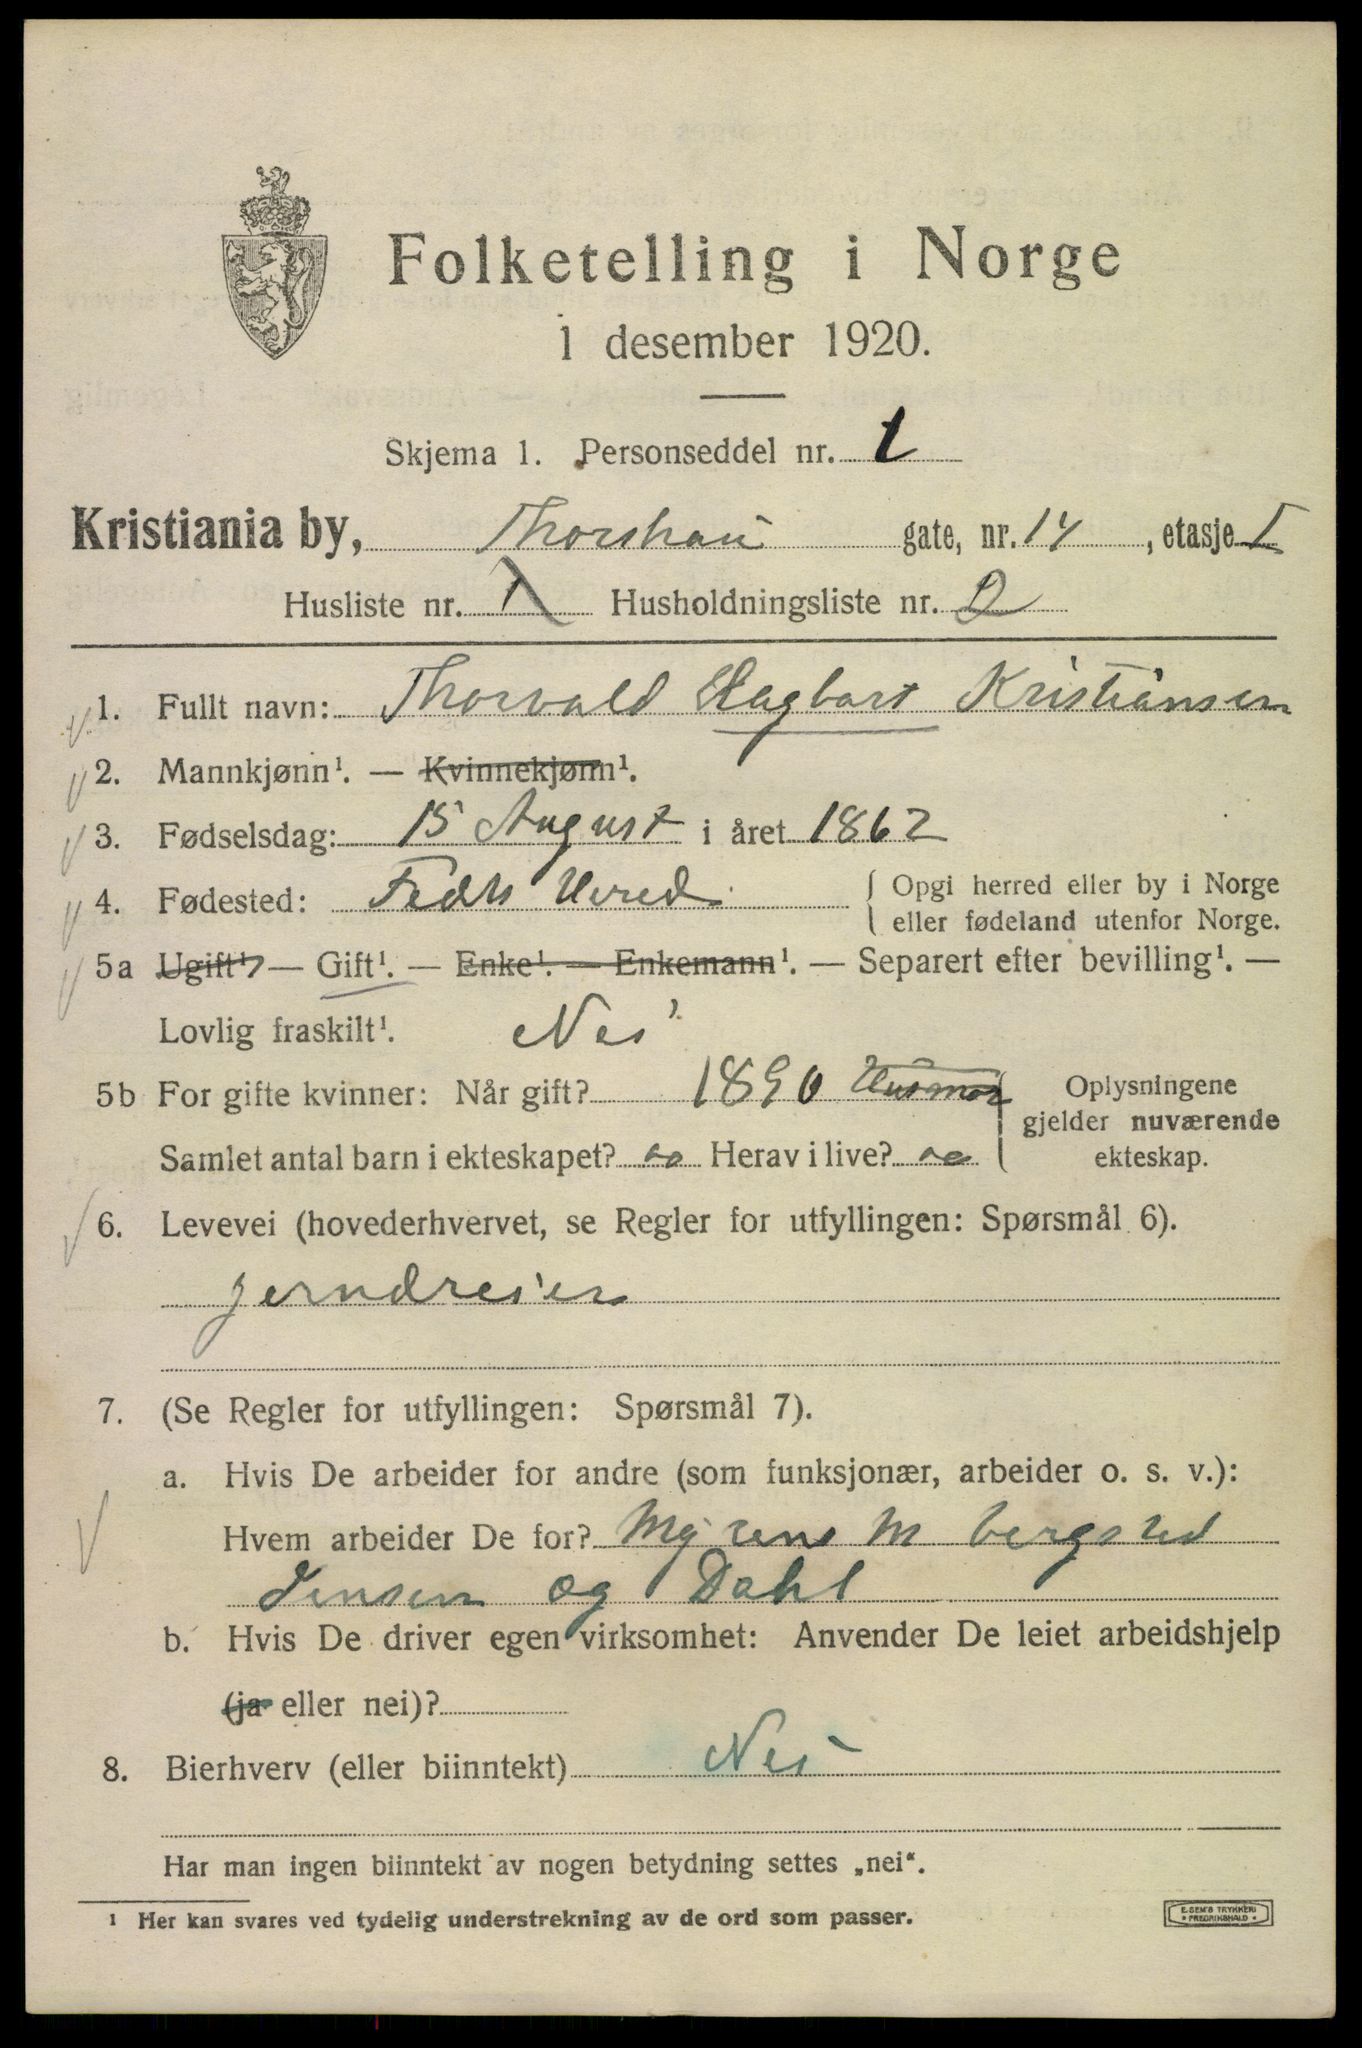 Folketelling i Norge
1 desember 1920.
Skjema 1. Personseddel nr. 1
Kristiania by, Thorshau gate, nr. 14, etasje I
Husliste nr. 1 Husholdningsliste nr. 2
1. Fullt navn: Thorvald Hagbart Kristiansen
2. Mannkjønn¹. — Kvinnekjønn¹.
3. Fødselsdag: 15 August i året 1862
4. Fødested: Feths Hered { Opgi herred eller by i Norge
eller fødeland utenfor Norge.
5a Ugift¹. — Gift¹. — Enke¹. — Enkemann¹. — Separert efter bevilling¹. —
Lovlig fraskilt¹. Nei
5b For gifte kvinner: Når gift? 1890 Husmor { Oplysningene
gjelder nuværende
Samlet antal barn i ekteskapet? Herav i live? ekteskap.
6. Levevei (hovederhvervet, se Regler for utfyllingen: Spørsmål 6).
jerndreier
7. (Se Regler for utfyllingen: Spørsmål 7).
a. Hvis De arbeider for andre (som funksjonær, arbeider o. s. v.):
Hvem arbeider De for? Myrens M bergsted
Jensen og Dahl
b. Hvis De driver egen virksomhet: Anvender De leiet arbeidshjelp
(ja eller nei)?
8. Bierhverv (eller biinntekt) Nei
Har man ingen biinntekt av nogen betydning settes „nei“.
¹ Her kan svares ved tydelig understrekning av de ord som passer.
E. SEM'S TRYKKERI
* FREDRIKSHALD *